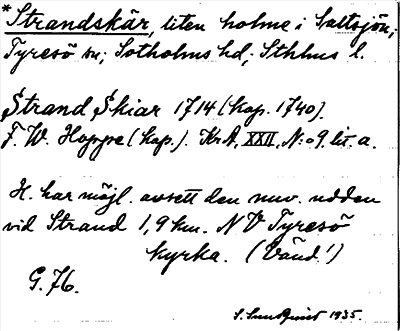 *Strandskär, liten holme i Saltsjön;
Tyresö sn; Sotholms hd, Sthlms l.
Strand Skiär 1714 (kop. 1740).
F. W. Hoppe (kop.). KrA, XXII, N:o 9. lit. a.
H. har möjl. avsett den nuv. udden
vid Strand 1,9 km. NV Tyresö
kyrka. (Vänd!)
G. 76.
S. Sundquist 1935.